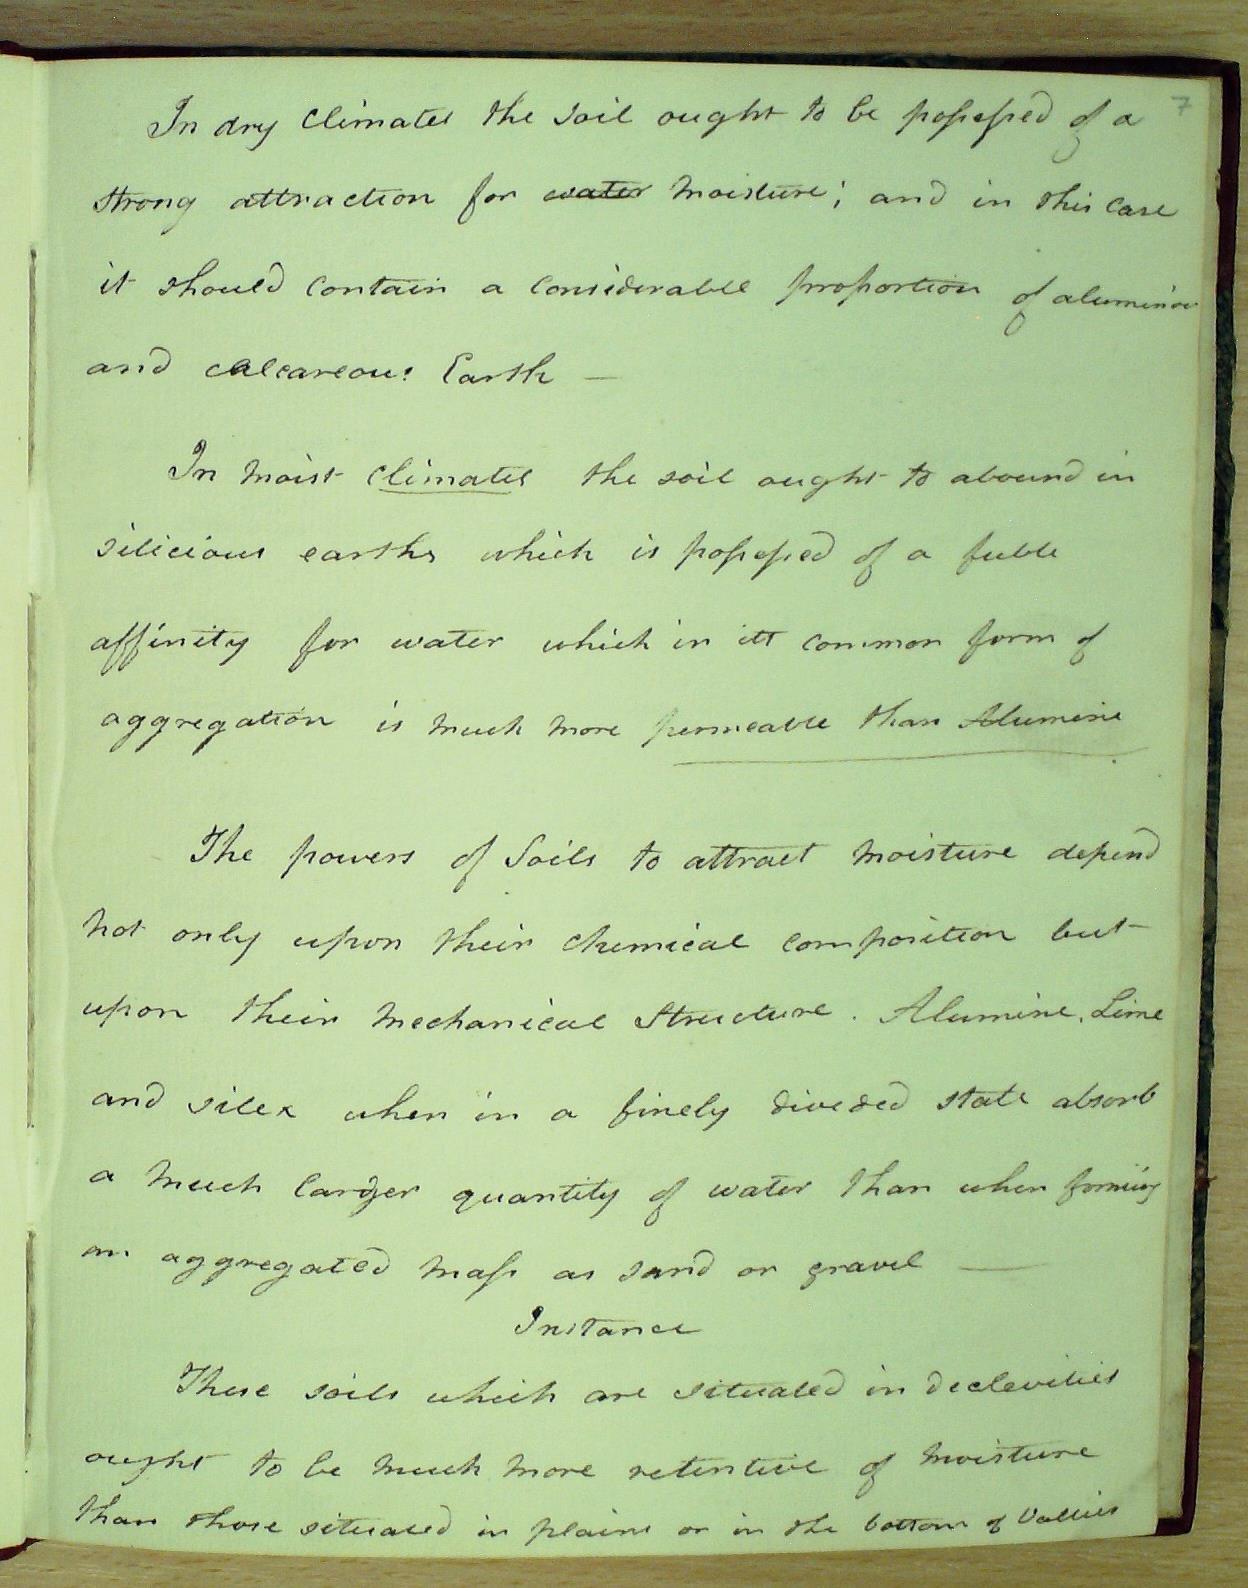 7
In dry climates the soil ought to be possessed of a
strong attraction for water moisture; and in this case
it should contain a considerable proportion of aluminous
and calcareous Earth —
In moist climates the soil ought to abound in
silicious earths which is possessed of a feeble
affinity for water which in its common form of
aggregation is much more permeable than Alumine
The powers of Soils to attract moisture depend
not only upon their chemical composition but
upon their mechanical structure. Alumine, Lime
and silex when in a finely divided state absorb
a much larger quantity of water than when forming
an aggregated mass as sand or gravel —
Instance
These soils which are situated in declevities
ought to be much more retentive of moisture
than those situated in plains or in the bottom of Vallies